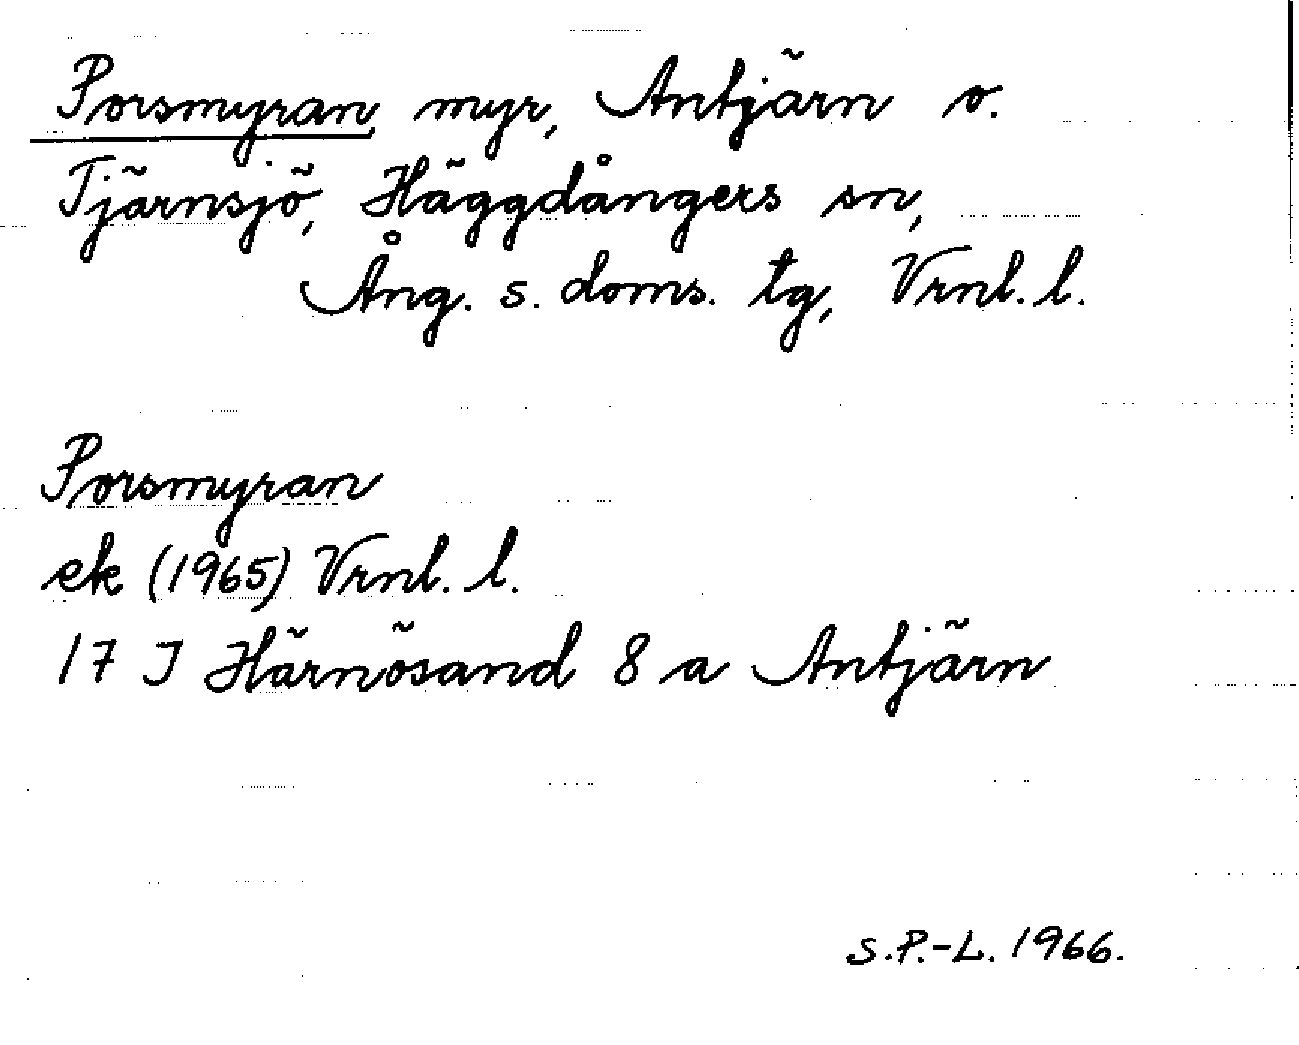 Porsmyran, myr, Antjärn o.
Tjärnsjö, Häggdångers sn,
Ång. s. doms. tg, Vrnl. l.
Porsmyran
ek (1965) Vrnl. l.
17 J Härnösand 8 a Antjärn
S.P.-L. 1966.